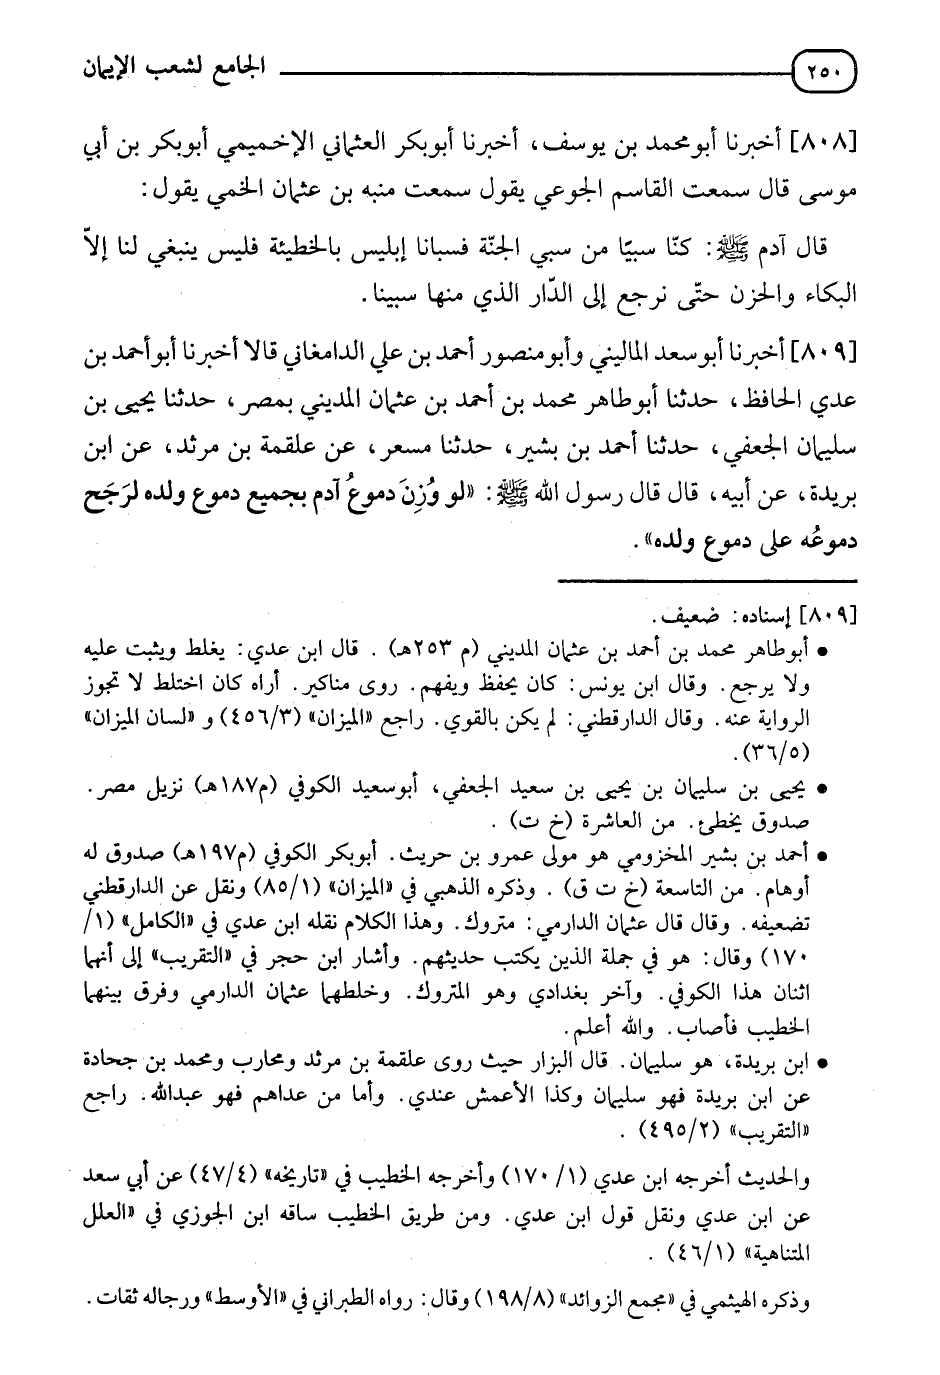 ٢٥٠ الجامع لشعب الإيمان
[٨٠٨] أخبرنا أبو محمد بن يوسف، أخبرنا أبوبكر العثماني الإخميمي أبوبكر بن أبي
موسى قال سمعت القاسم الجوعي يقول سمعت منبه بن عثمان الخمي يقول:
قال آدم ﷺ: كنّا سبيًا من سبي الجنّة فسبانا إبليس بالخطيئة فليس ينبغي لنا إلاّ
البكاء والحزن حتّى نرجع إلى الدّار الذي منها سبينا.
[٨٠٩] أخبرنا أبو سعد الماليني وأبو منصور أحمد بن علي الدامغاني قالا أخبرنا أبو أحمد بن
عدي الحافظ، حدثنا أبوطاهر محمد بن أحمد بن عثمان المديني بمصر، حدثنا يحيى بن
سليمان الجعفي، حدثنا أحمد بن بشير، حدثنا مسعر، عن علقمة بن مرثد، عن ابن
بريدة، عن أبيه، قال قال رسول الله ﷺ: «لو وُزِنَ دموعُ آدم بجميع دموع ولده لرَجَح
دموعُه على دموع ولده».
[٨٠٩] إسناده: ضعيف.
• أبوطاهر محمد بن أحمد بن عثمان المديني (م ٢٥٣هـ). قال ابن عدي: يغلط ويثبت عليه
ولا يرجع. وقال ابن يونس: كان يحفظ ويفهم. روى مناكير. أراه كان اختلط لا تجوز
الرواية عنه. وقال الدارقطني: لم يكن بالقوي. راجع «الميزان» (٤٥٦/٣) و «لسان الميزان»
(٣٦/٥).
• يحيى بن سليمان بن يحيى بن سعيد الجعفي، أبوسعيد الكوفي (م١٨٧هـ) نزيل مصر.
صدوق يخطئ. من العاشرة (خ ت).
• أحمد بن بشير المخزومي هو مولى عمرو بن حريث. أبوبكر الكوفي (م١٩٧هـ) صدوق له
أوهام. من التاسعة (خ ت ق). وذكره الذهبي في «الميزان» (٨٥/١) ونقل عن الدارقطني
تضعيفه. وقال قال عثمان الدارمي: متروك. وهذا الكلام نقله ابن عدي في «الكامل» (١/
١٧٠) وقال: هو في جملة الذين يكتب حديثهم. وأشار ابن حجر في «التقريب» إلى أنهما
اثنان هذا الكوفي. وآخر بغدادي وهو المتروك. وخلطهما عثمان الدارمي وفرق بينهما
الخطيب فأصاب. والله أعلم.
• ابن بريدة، هو سليمان. قال البزار حيث روى علقمة بن مرثد ومحارب ومحمد بن جحادة
عن ابن بريدة فهو سليمان وكذا الأعمش عندي. وأما من عداهم فهو عبدالله. راجع
«التقريب» (٤٩٥/٢).
والحديث أخرجه ابن عدي (١/ ١٧٠) وأخرجه الخطيب في «تاريخه» (٤٧/٤) عن أبي سعد
عن ابن عدي ونقل قول ابن عدي. ومن طريق الخطيب ساقه ابن الجوزي في «العلل
المتناهية» (٤٦/١).
وذكره الهيثمي في «مجمع الزوائد» (١٩٨/٨) وقال: رواه الطبراني في «الأوسط» ورجاله ثقات.